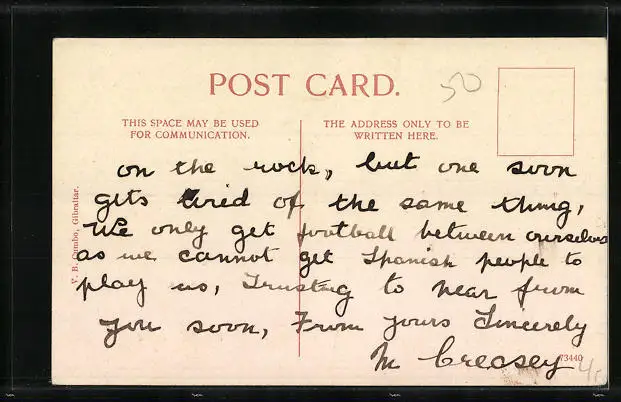 POST CARD.
50
THIS SPACE MAY BE USED
FOR COMMUNICATION.
THE ADDRESS ONLY TO BE
WRITTEN HERE.
on the rock, but one soon
gets tired of the same thing,
We only get football between ourselves
as we cannot get Spanish people to
play us, Trusting to hear from
you soon, From yours Sincerely
M Creasey
V. B. Cumbo, Gibraltar.
73440